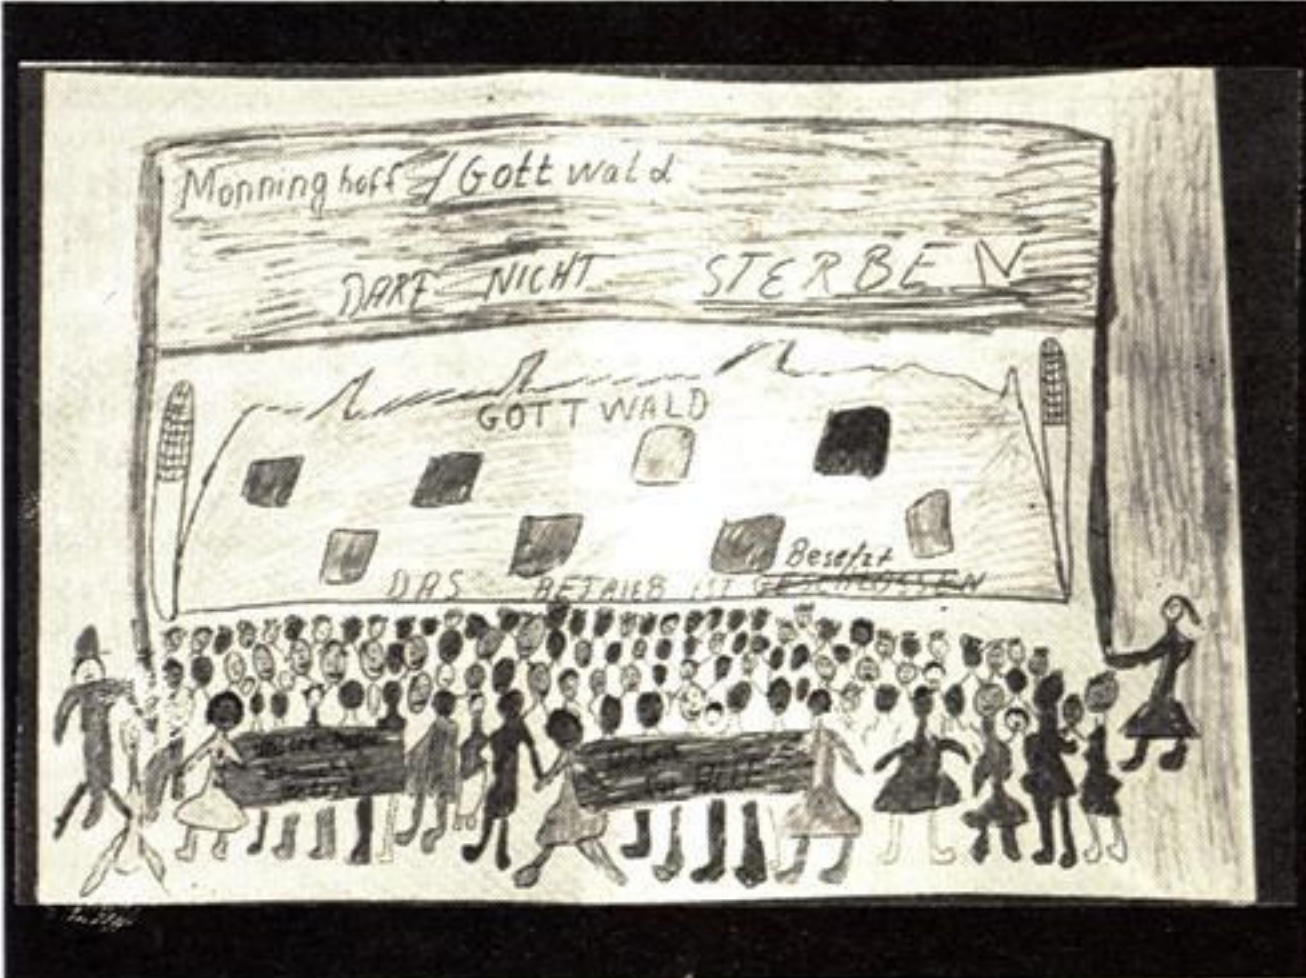 Monninghoff / Gottwald
DARF NICHT STERBEN
GOTTWALD
Besetzt
DAS BETRIEB IST GESCHLOSSEN
für ALLE